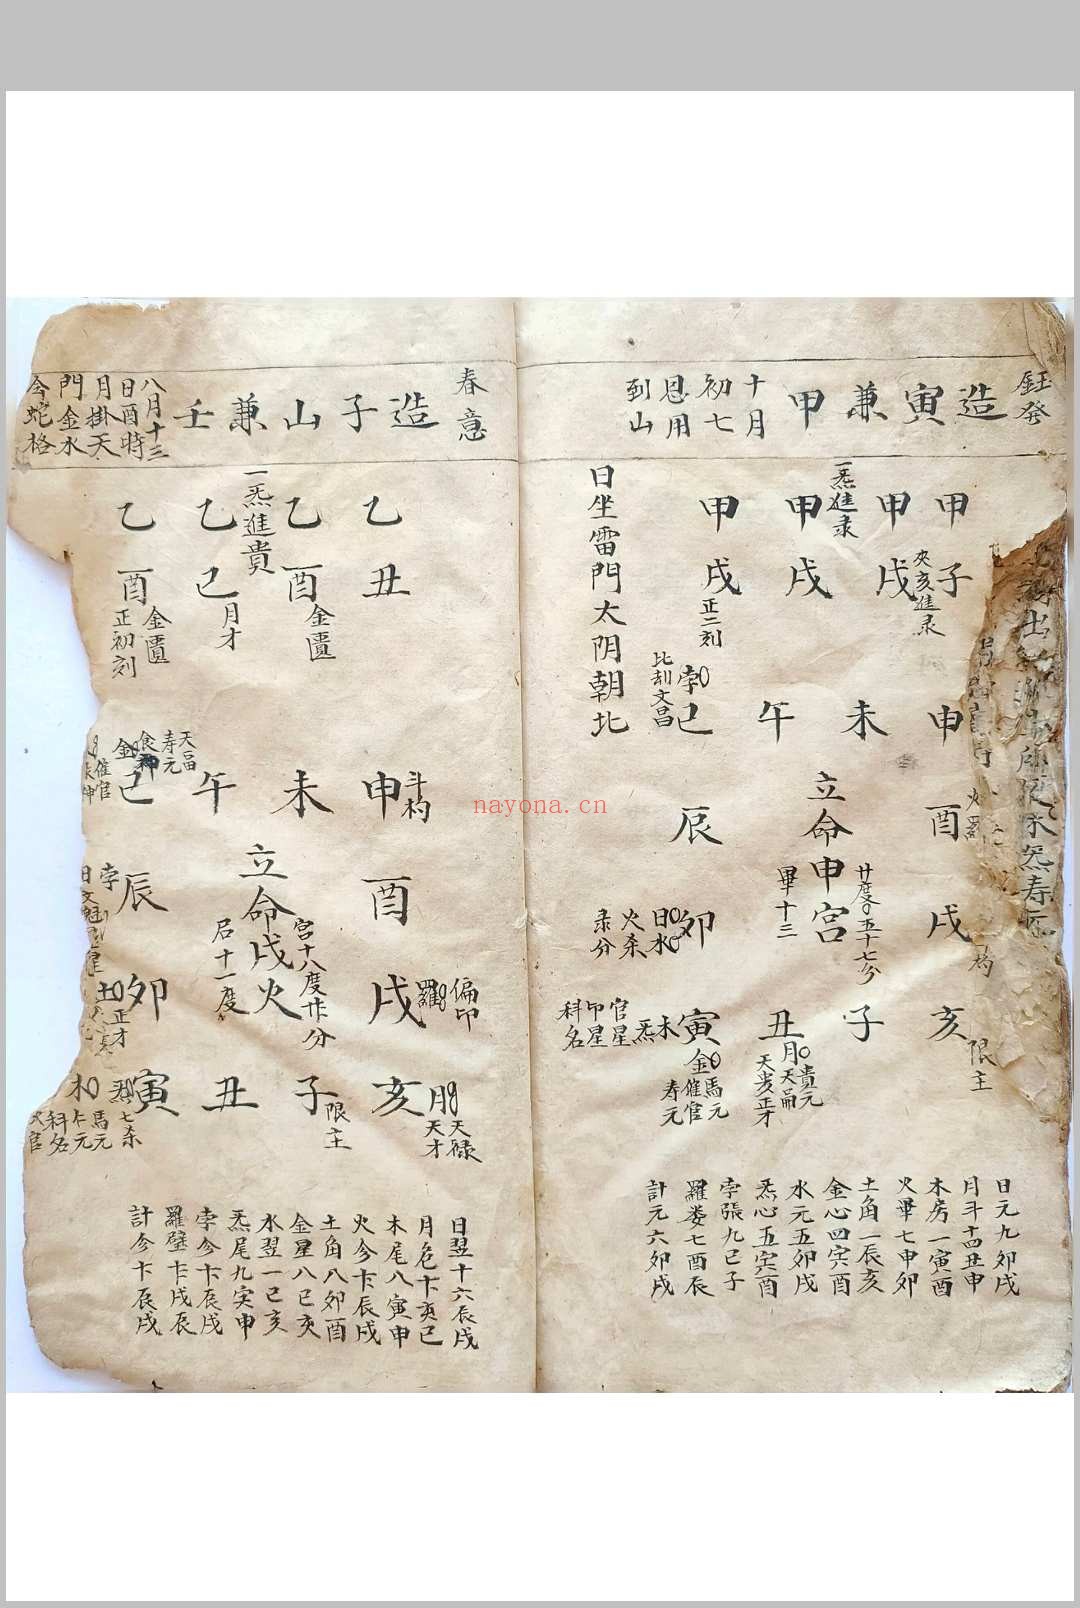 鈺発
造寅兼甲
十月
初七
恩用
到山
甲子
甲戌
甲戌
甲戌
夾亥進彔
一炁進彔
正二刻
日坐雷門太阴朝北
孛
比刦文昌
巳
午
未
申
辰
立命申宮
畢十三
廿度五十七分
酉
日水
火杀
彔分
卯
戌
官星
印星
科名
木
炁
寅
丑
子
亥
限主
金
馬元
催官
寿元
月
貴元
天嗣
天歲正才
日元九卯戌
月斗十四丑申
木房一寅酉
火畢七申卯
土角一辰亥
金心四寅酉
水元五卯戌
炁心五寅酉
孛張九巳子
羅娄七酉辰
計元六卯戌
春意
造子山兼壬
八月十三
日酉時
月掛天
門金水
今蛇格
乙丑
乙酉
乙巳
乙酉
金匱
一炁進貴
月才
金匱
正初刻
天福
寿元
食神
金
催官
巳
午
未
申
斗杓
孛
辰
立命戌火
宫十八度
分
十一度
酉
土
正才
卯
戌
羅
偏印
木
炁
七杀
馬元
科名
寅
丑
子
限主
亥
月
天禄
天才
日翌十六辰戌
月危卞亥巳
木尾八寅申
火參卞辰戌
土角八卯酉
金星八巳亥
水翌一巳亥
炁尾九寅申
孛參卞辰戌
羅壁卞戌辰
計參卞辰戌
nayona.cn